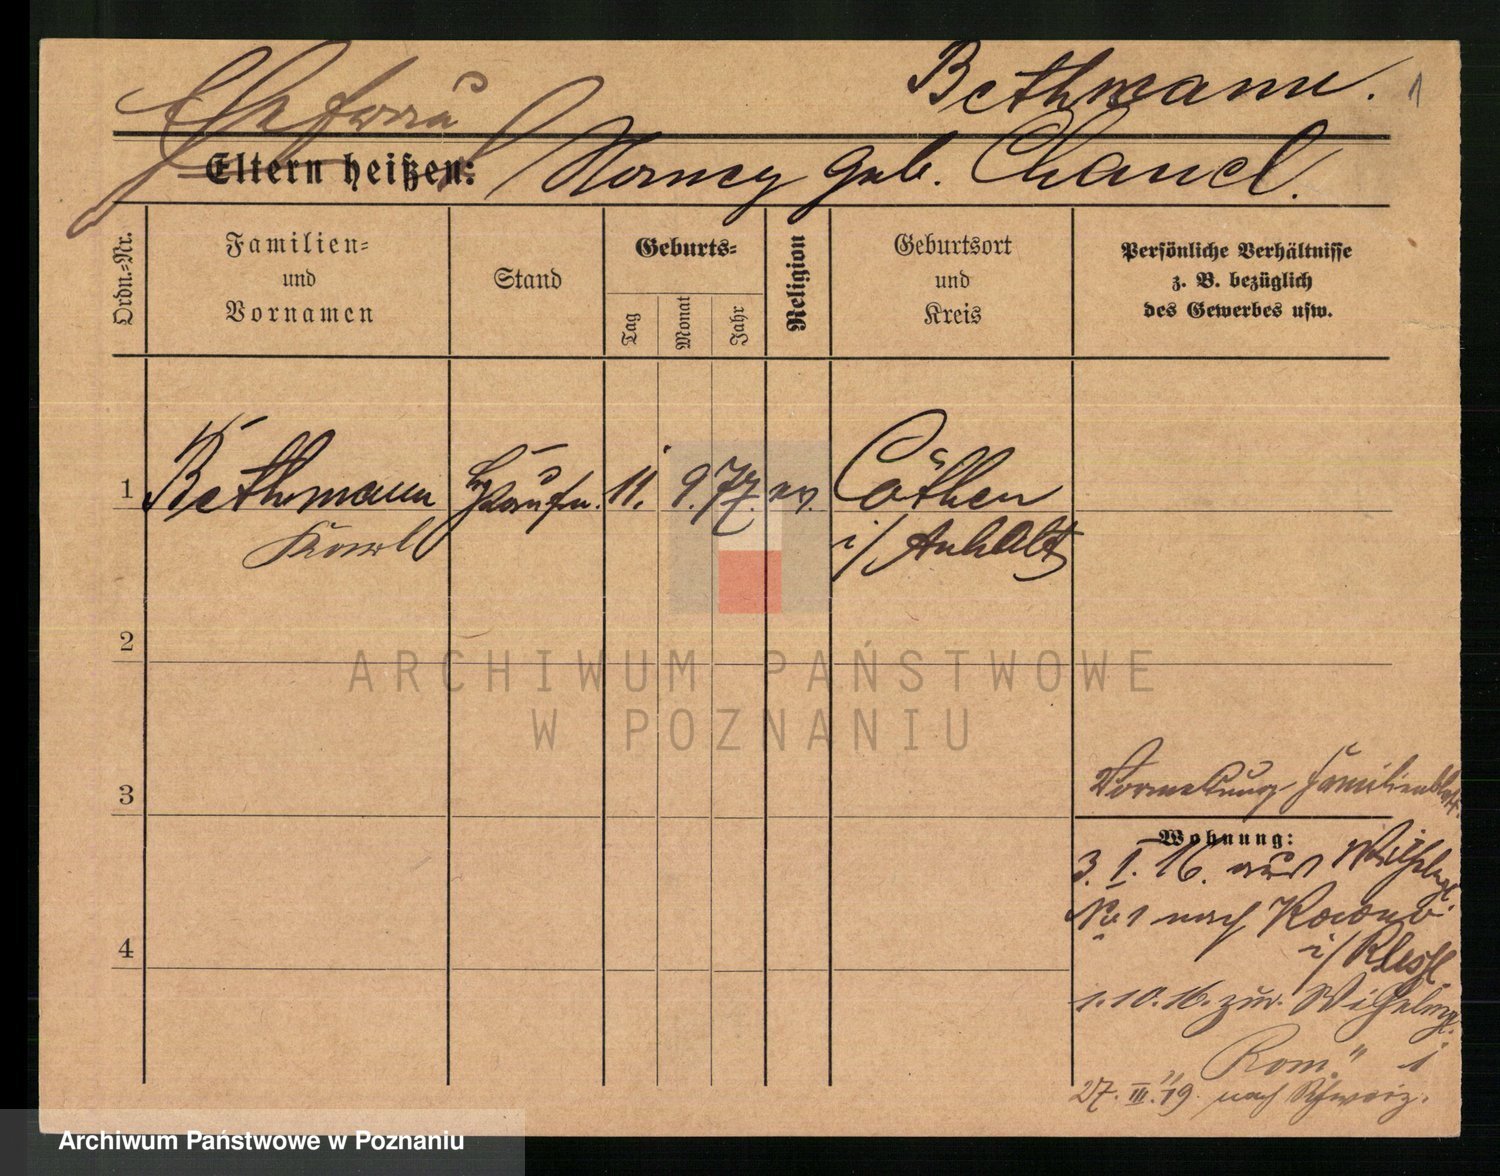 Bethmann. 1
Ehefrau
Eltern heißen: Nancy geb. Chancel.
Ordn.-Nr.
Familien-
und
Vornamen
Stand
Geburts-
Tag
Monat
Jahr
Religion
Geburtsort
und
Kreis
Persönliche Verhältnisse
z. B. bezüglich
des Gewerbes usw.
1 Bethmann Kaufm. 11. 9. 77. ev. Cöthen
Karl i/ Anhalt
2
3
Familienblatt.
Wohnung:
3. I. 16. aus Wilhelmpl.
No 1 nach
4
1.10.16. zur. Wilhelmpl.
" Rom. " 1
27. III. 19. nach Schweiz.
ARCHIWUM PAŃSTWOWE
W POZNANIU
Archiwum Państwowe w Poznaniu